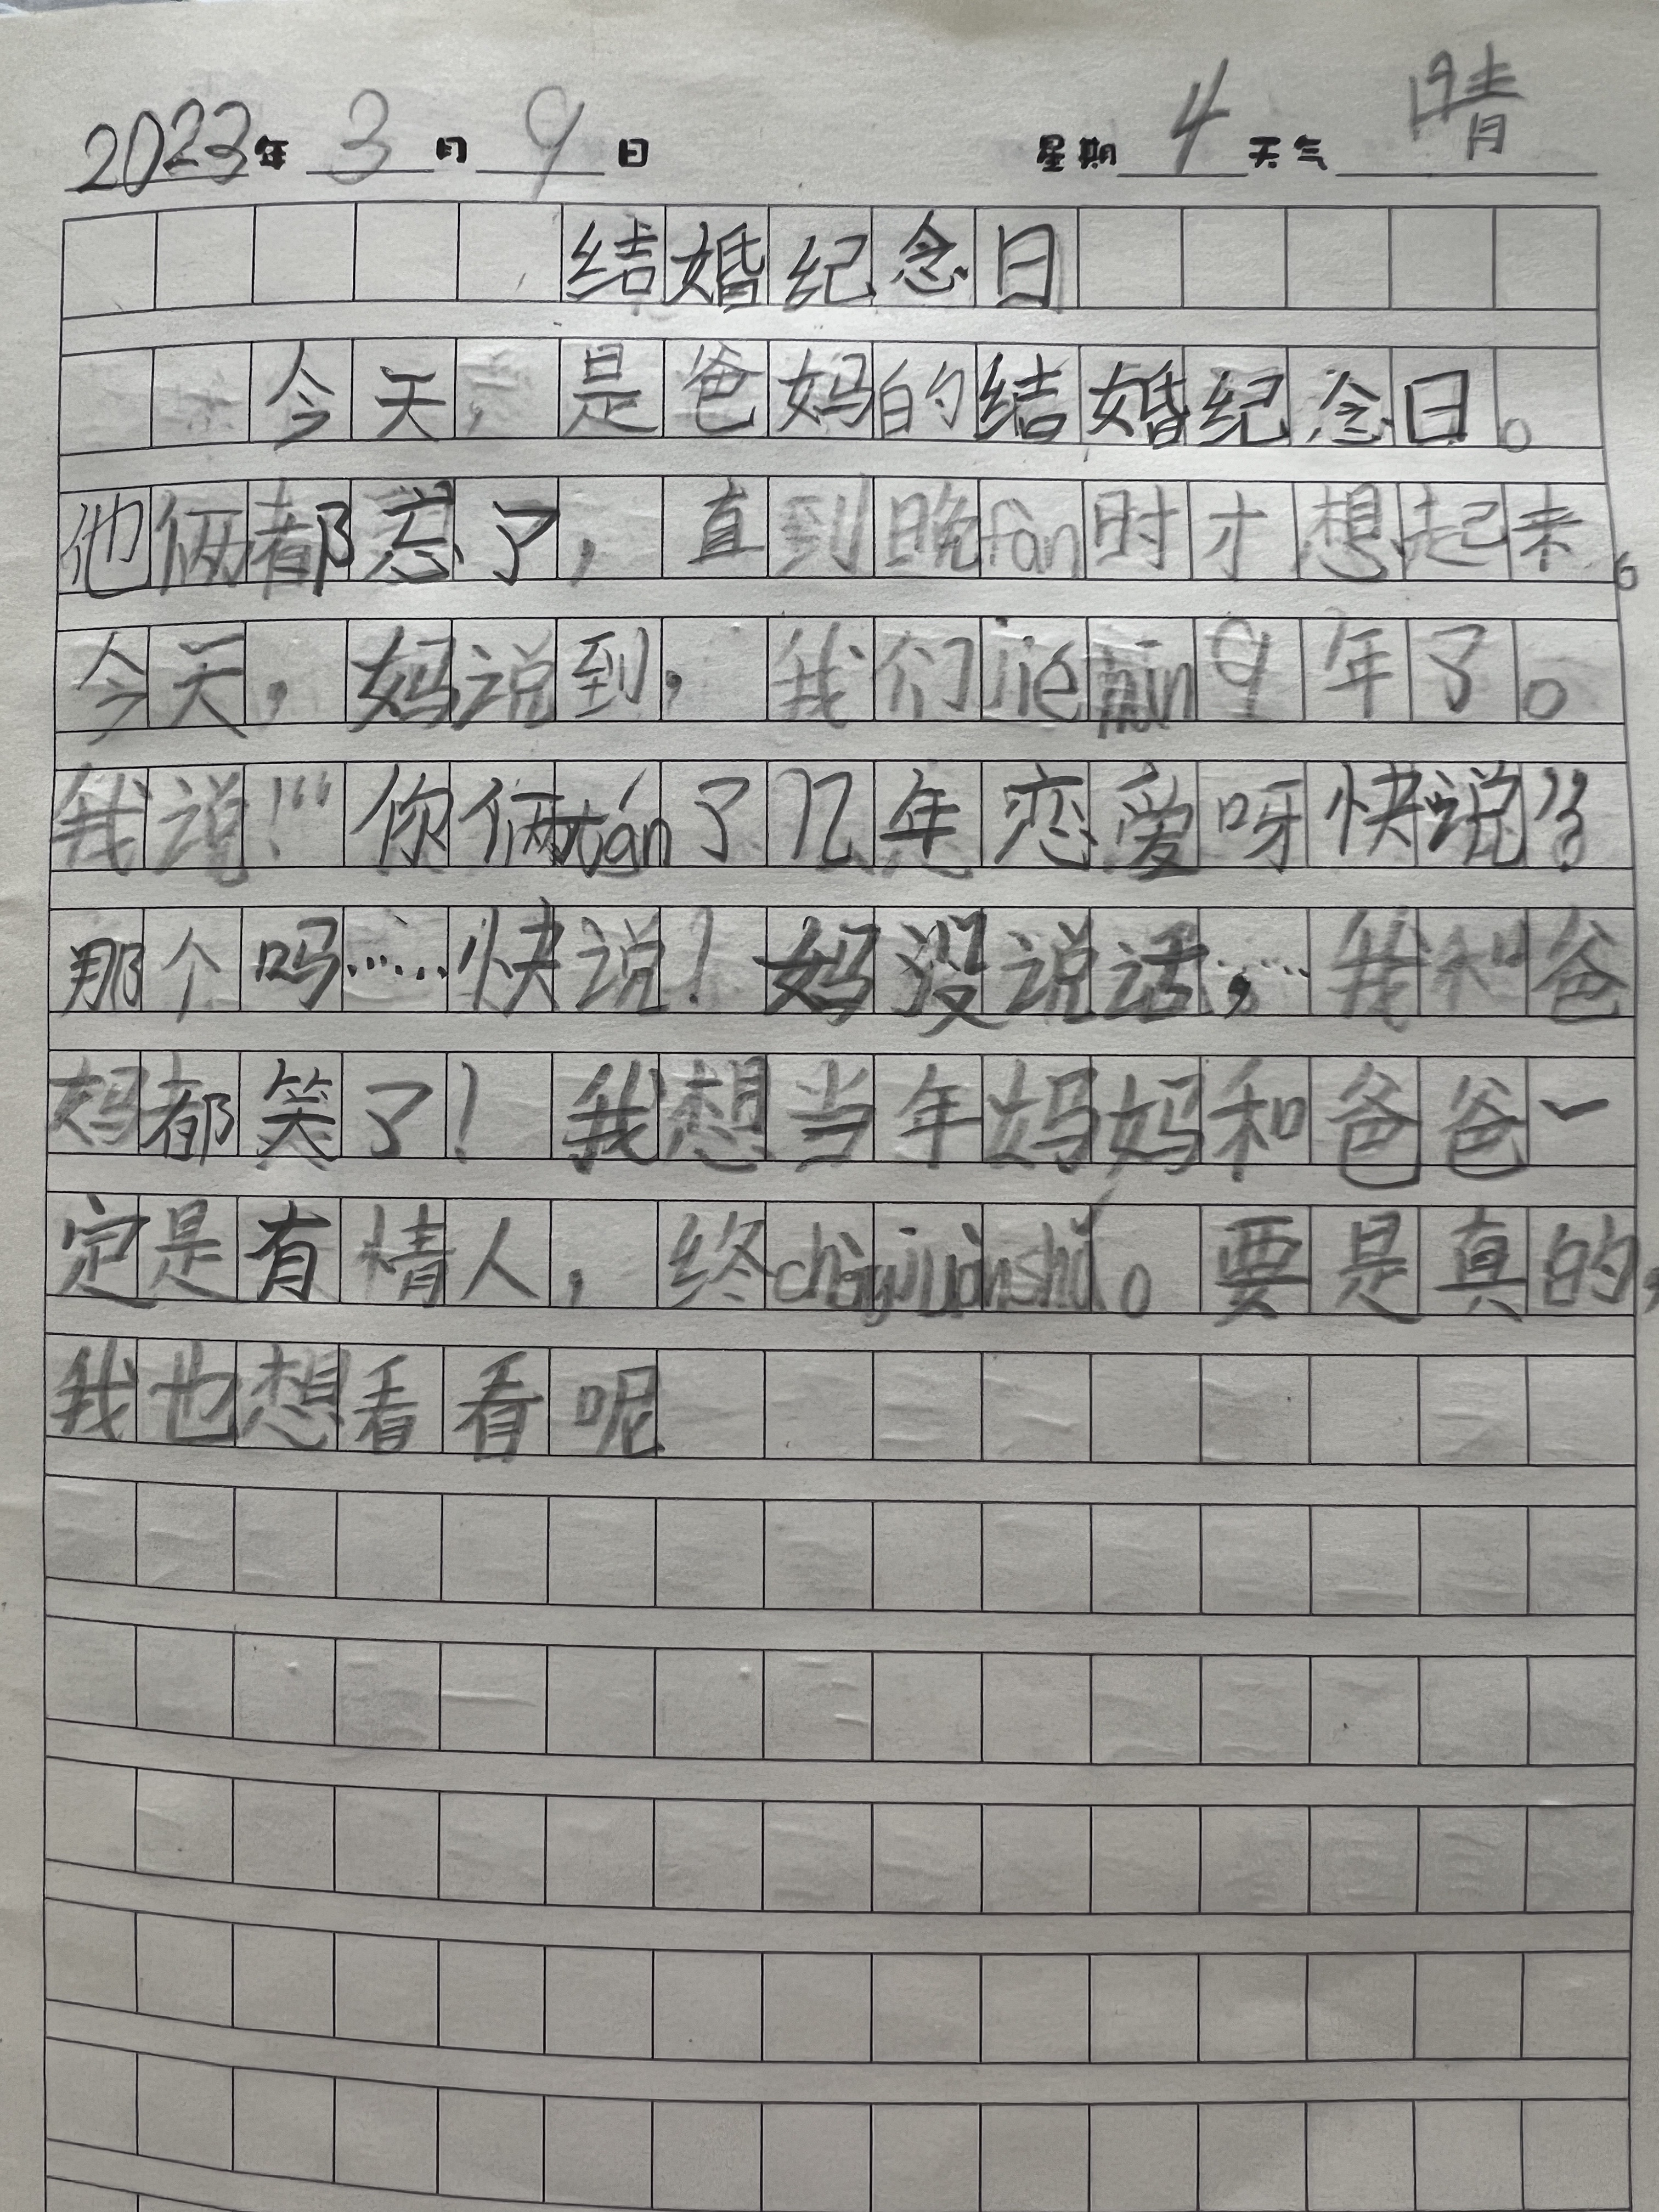 2023年 3 月 9 日 星期 4 天气 晴
结婚纪念日
今天,是爸妈的结婚纪念日。
他俩都忘了，直到晚fàn时才想起来。
今天，妈说到，我们jie hūn9年了。
我说！“你俩tán了几年恋爱呀快说”
那个吗……快说！妈没说话，……我和爸
妈都笑了！我想当年妈妈和爸爸一
定是有情人，终。要是真的，
我也想看看呢